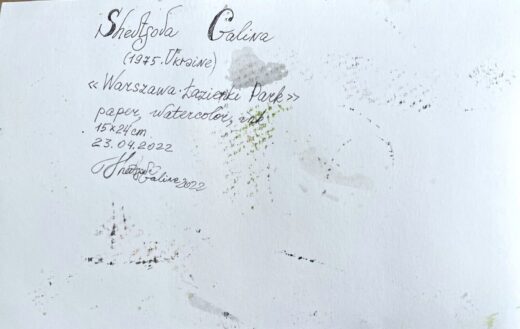 Shedtsoda Galina
(1975. Ukraine)
«Warszawa. Łazienki Park»
paper, watercolor, ink
15×24cm
23.04.2022
Galina 2022